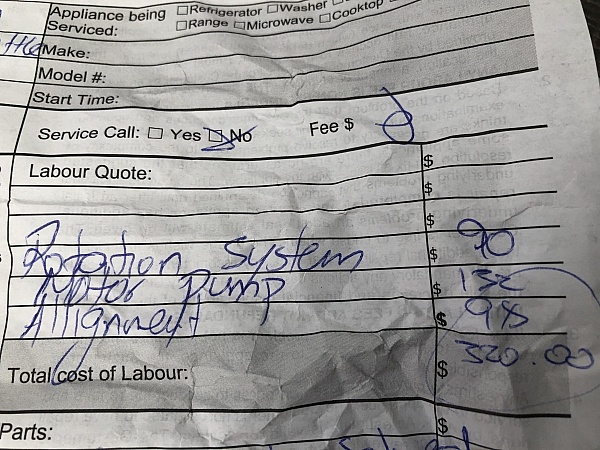 Appliance being Serviced: ☐Refrigerator ☐Washer
☐Range ☐Microwave ☐Cooktop
Make:
Model #:
Start Time:
Service Call: ☐ Yes ☐ No Fee $
Labour Quote: $
$
$
Rotation System $ 90
Motor Pump $ 132
Allignment $ 98
Total cost of Labour: $ 320.00
Parts: $